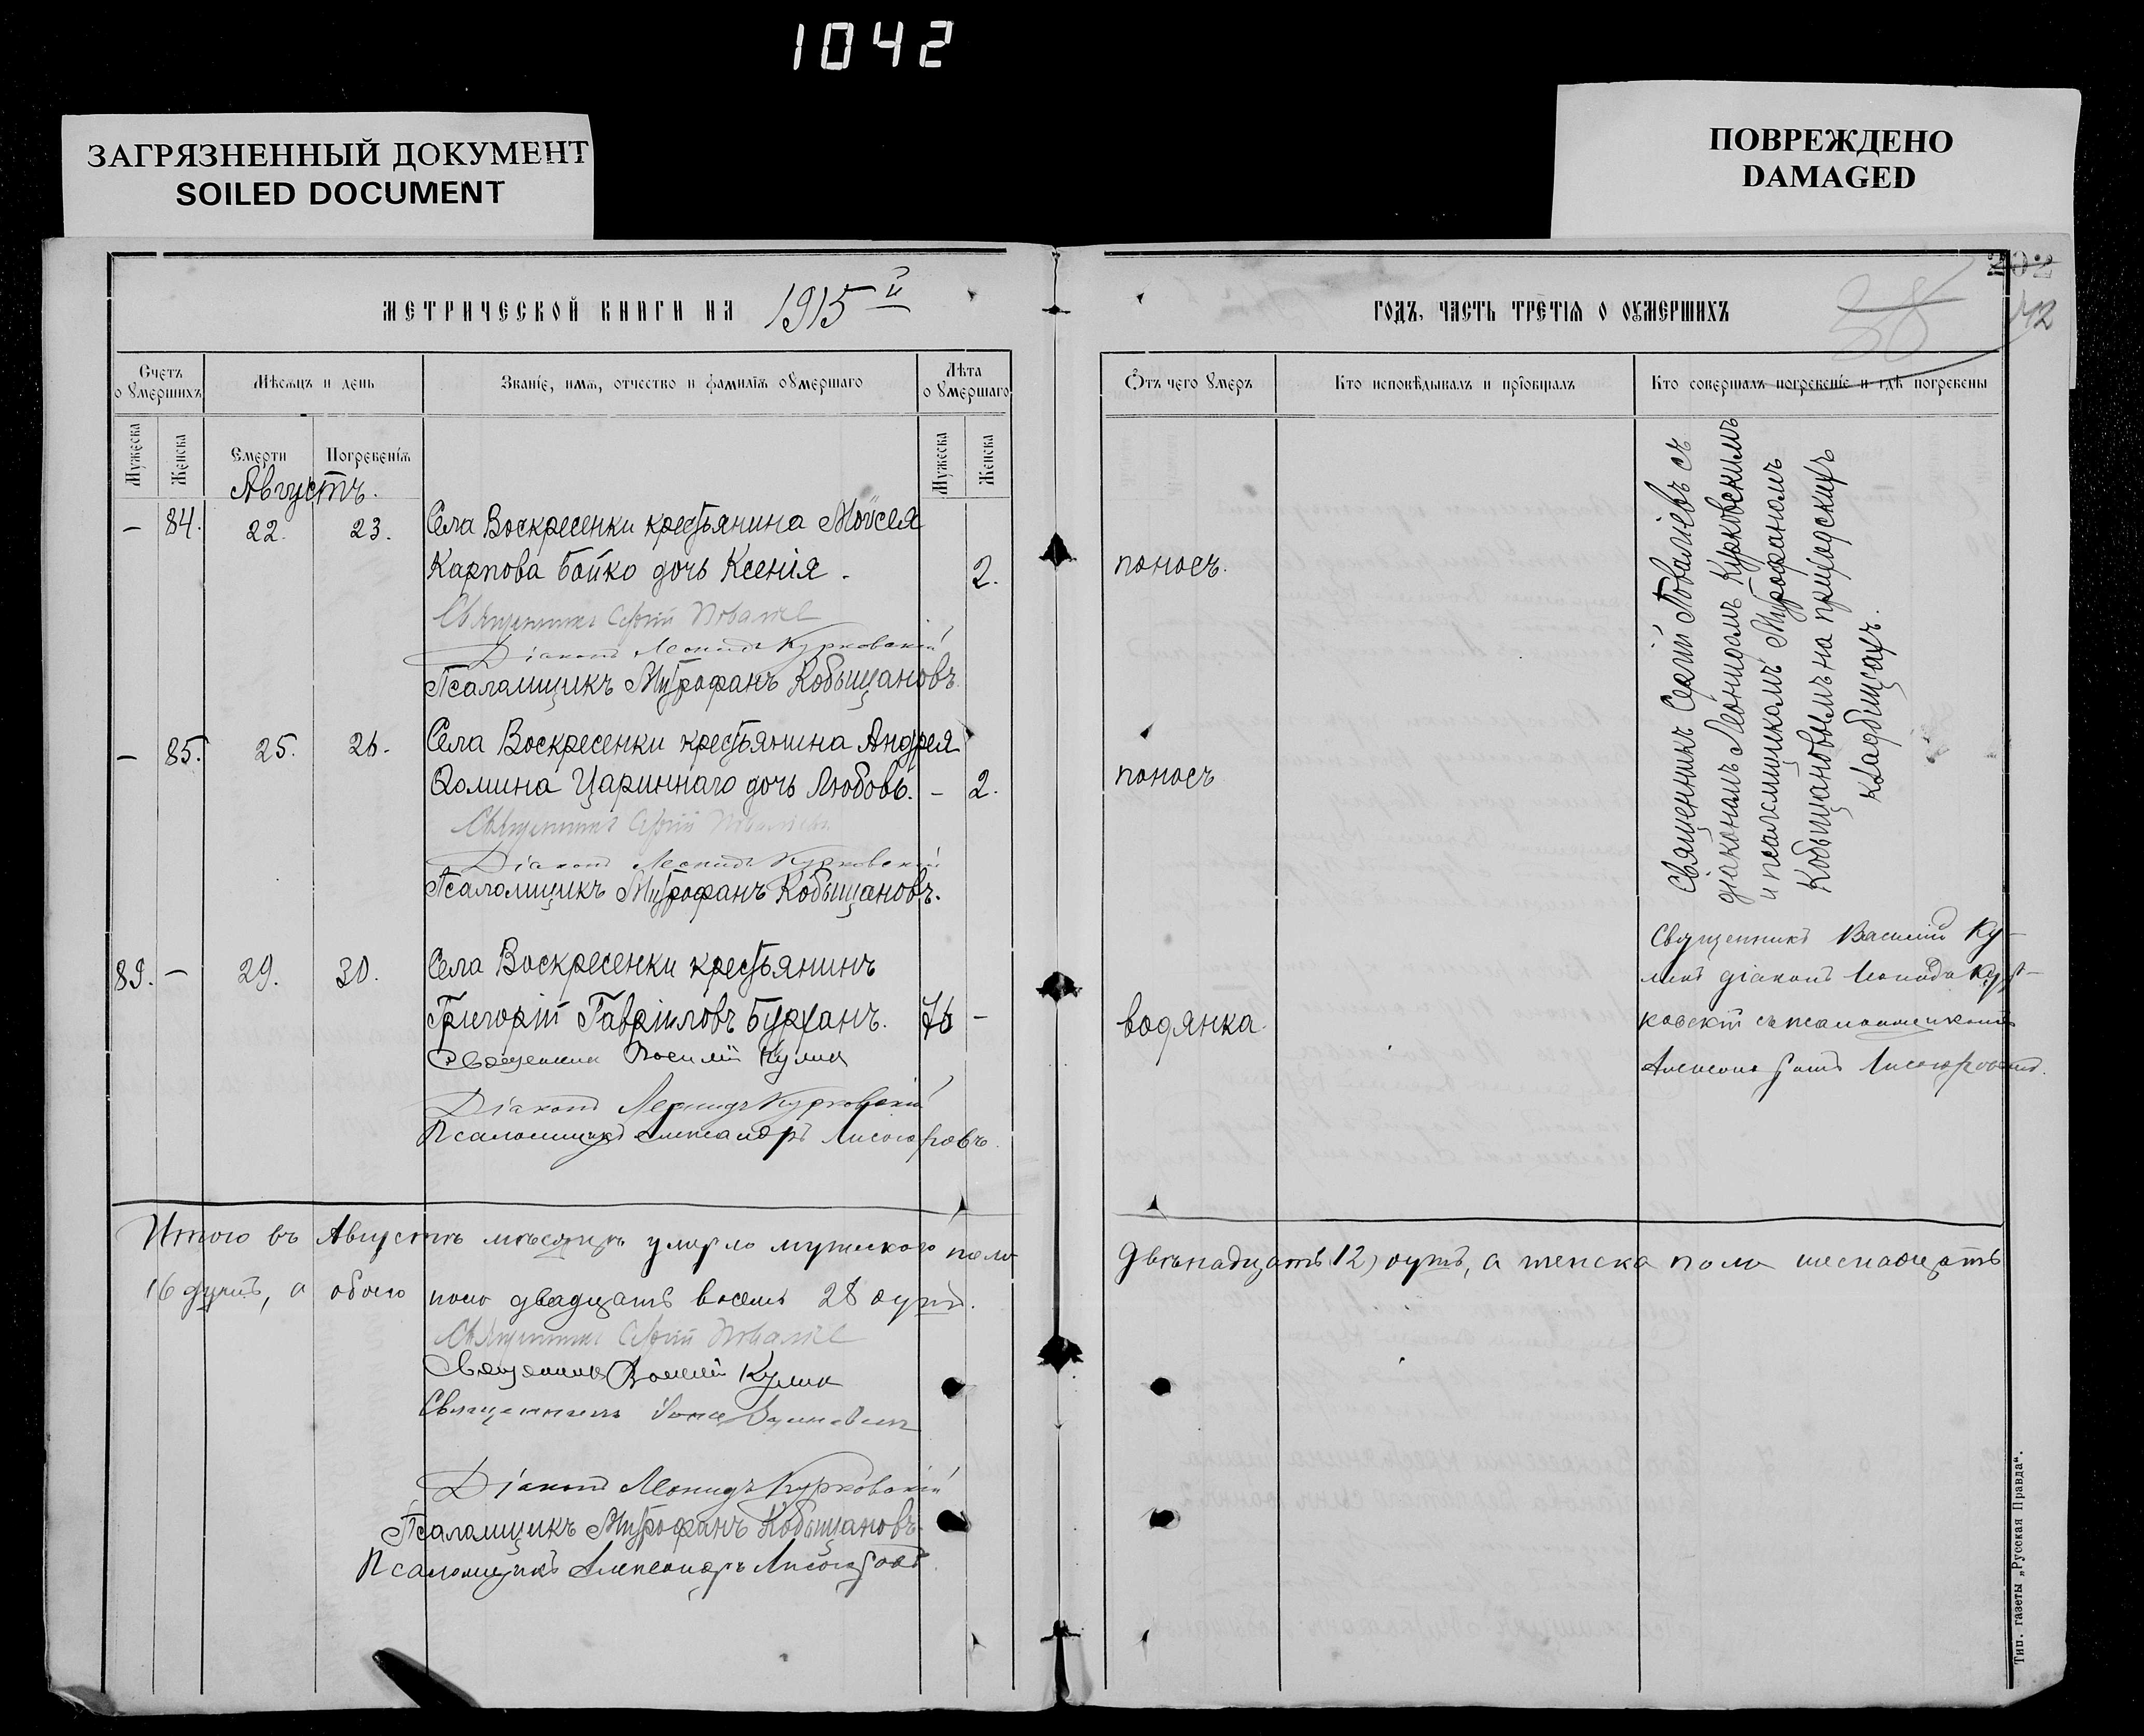 1042
ЗАГРЯЗНЕННЫЙ ДОКУМЕНТ
SOILED DOCUMENT
ПОВРЕЖДЕНО
DAMAGED
202
142
МЕТРИЧЕСКОЙ КНИГИ НА 1915й
Счетъ о умершихъ
Мѣсяцъ и день
Званіе, имя, отчество и фамилія умершаго
Лѣта умершаго
Мужеска
Женска
Смерти
Погребенія
Мужеска
Женска
Августъ.
– 84. 22. 23. Села Воскресенки крестьянина Моисея
Карпова Бойко дочь Ксенія. 2.
Священникъ Сергій
Діаконъ Леонидъ Курковскій
Псаломщикъ Митрофанъ Кобыщановъ.
– 85. 25. 26. Села Воскресенки крестьянина Андрея
Ѳомина Цариннаго дочь Любовь. – 2.
Священникъ Сергій
Діаконъ Леонидъ Курковскій
Псаломщикъ Митрофанъ Кобыщановъ.
89. – 29. 30. Села Воскресенки крестьянинъ
Григорій Гавріиловъ Бурханъ. 76 –
Священникъ Василій Кулик
Діаконъ Леонидъ Курковскій
Псаломщикъ Александръ Лисогоровъ.
Итого въ Августѣ мѣсяцѣ умерло мужескаго пола
16 душъ, а обоего пола двадцать восемь 28 душъ.
Священникъ Сергій
Священникъ Василій Кулик
Священникъ
Діаконъ Леонидъ Курковскій
Псаломщикъ Митрофанъ Кобыщановъ
Псаломщикъ Александръ Лисогоровъ
ГОДЪ, ЧАСТЬ ТРЕТІЯ О ОУМЕРШИХЪ
Отъ чего умеръ
Кто исповѣдывалъ и пріобщалъ
Кто совершалъ погребеніе и гдѣ погребены
поносъ.
поносъ
водянка.
Священникъ Сергій Поваліевъ съ
діакономъ Леонидомъ Курковскимъ
и псаломщикомъ Митрофаномъ
Кобыщановымъ на приходскихъ
кладбищахъ.
Священникъ Василій Ку-
ликъ діаконъ Леонидъ Кур-
ковскій съ псаломщикомъ
Александромъ Лисогоровымъ.
двѣнадцать (12) душъ, а женска пола шеснадцать
Тип. газеты „Русская Правда“.